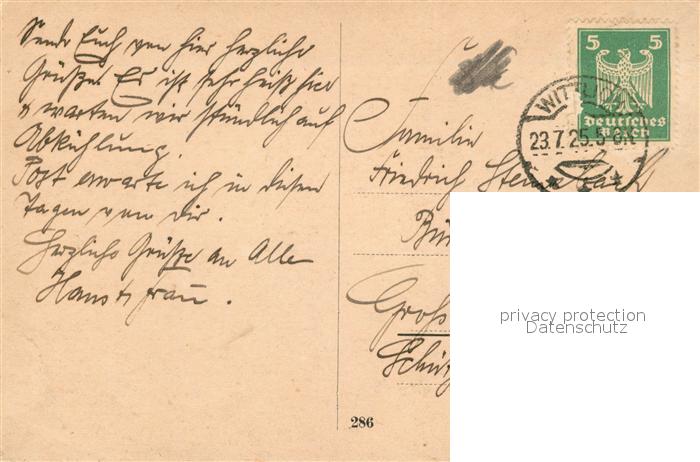 Sende Euch von hier herzliche
Grüße. Es ist sehr heiß hier
u warten wir stündlich auf
Abkühlung.
Post erwarte ich in diesen
Tagen von Dir.
Herzliche Grüße an Alle
Hans u Frau.
Familie
Friedrich
Groß
Schütz
286
5 5
Deutsches
Reich
WITTLICH
23.7.25.5-6N.
privacy protection
Datenschutz